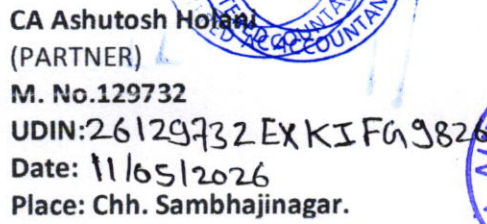 CA Ashutosh Holani
(PARTNER)
M. No.129732
UDIN:26129732EXKIFG9826
Date: 11/05/2026
Place: Chh. Sambhajinagar.
ACCOUNTAN